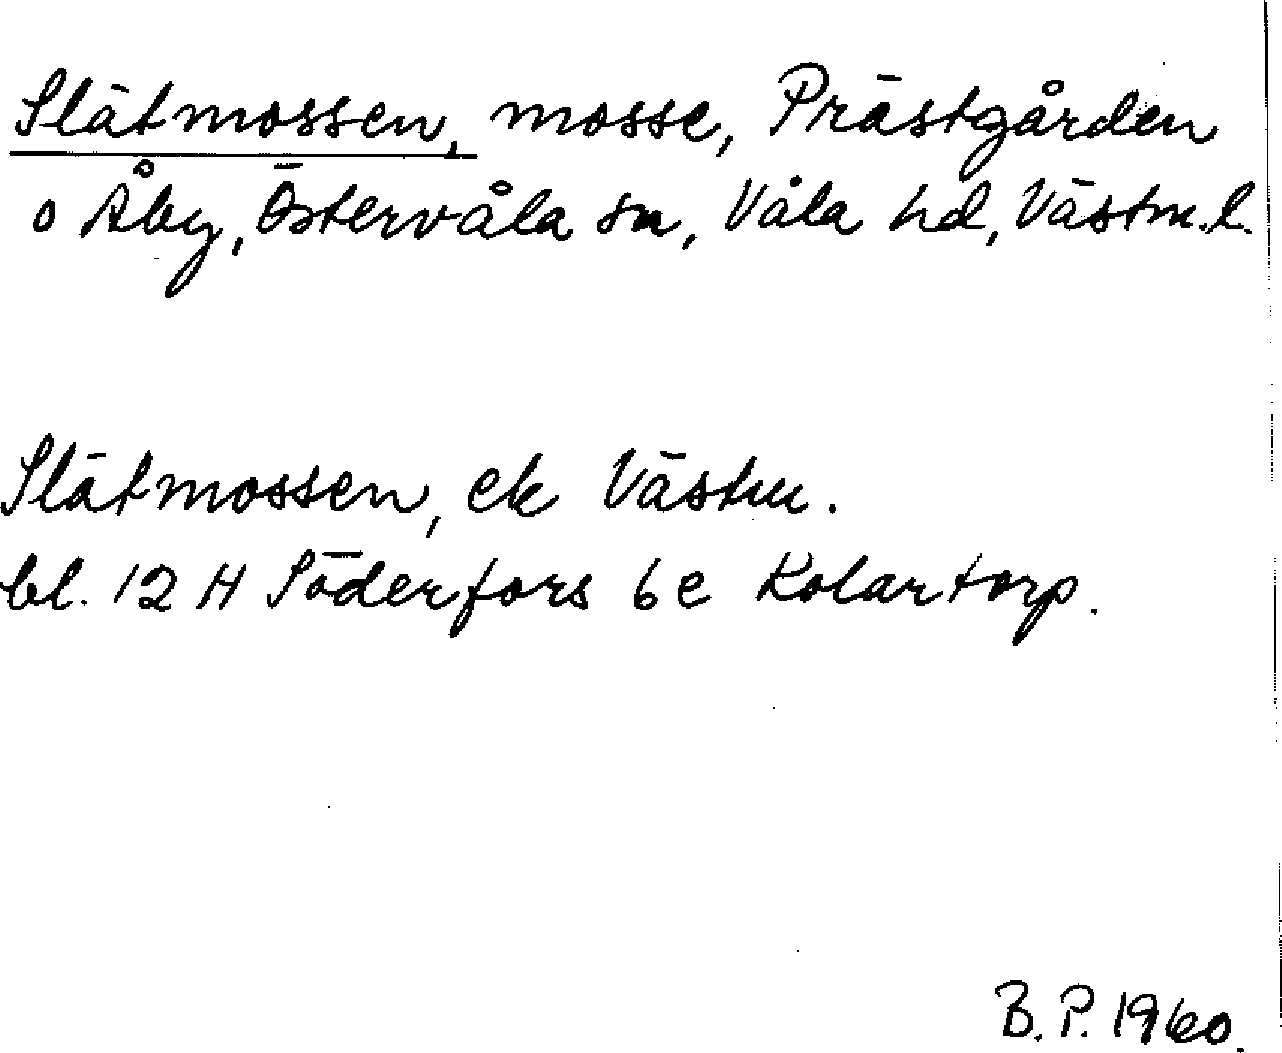 Slätmossen, mosse, Prästgården
o Åby, Östervåla sn, Våla hd, Västm.l.
Slätmossen, ek Västm.
bl. 12 H Söderfors 6 e Kolartorp.
B.P. 1960.